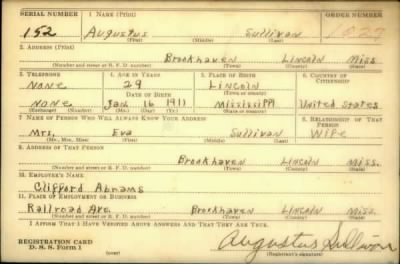 SERIAL NUMBER 1. NAME (Print) ORDER NUMBER
152 Augustus Sullivan
(First) (Middle) (Last)
2. ADDRESS (Print)
Brookhaven Lincoln Miss.
(Number and street or R. F. D. number) (Town) (County) (State)
3. TELEPHONE 4. AGE IN YEARS 5. PLACE OF BIRTH 6. COUNTRY OF CITIZENSHIP
None 29 Lincoln
(Town or county)
DATE OF BIRTH
None Jan 16 1911 Mississippi United States
(Exchange) (Number) (Mo.) (Day) (Yr.) (State or country)
7. NAME OF PERSON WHO WILL ALWAYS KNOW YOUR ADDRESS 8. RELATIONSHIP OF THAT PERSON
Mrs. Eva Sullivan Wife
(Mr., Mrs., Miss) (First) (Middle) (Last)
9. ADDRESS OF THAT PERSON
Brookhaven Lincoln Miss.
(Number and street or R. F. D. number) (Town) (County) (State)
10. EMPLOYER'S NAME
Clifford Abrams
11. PLACE OF EMPLOYMENT OR BUSINESS
Railroad Ave Brookhaven Lincoln Miss.
(Number and street or R. F. D. number) (Town) (County) (State)
I AFFIRM THAT I HAVE VERIFIED ABOVE ANSWERS AND THAT THEY ARE TRUE.
REGISTRATION CARD
D. S. S. Form 1 (over) Augustus Sullivan
(Registrant's signature)